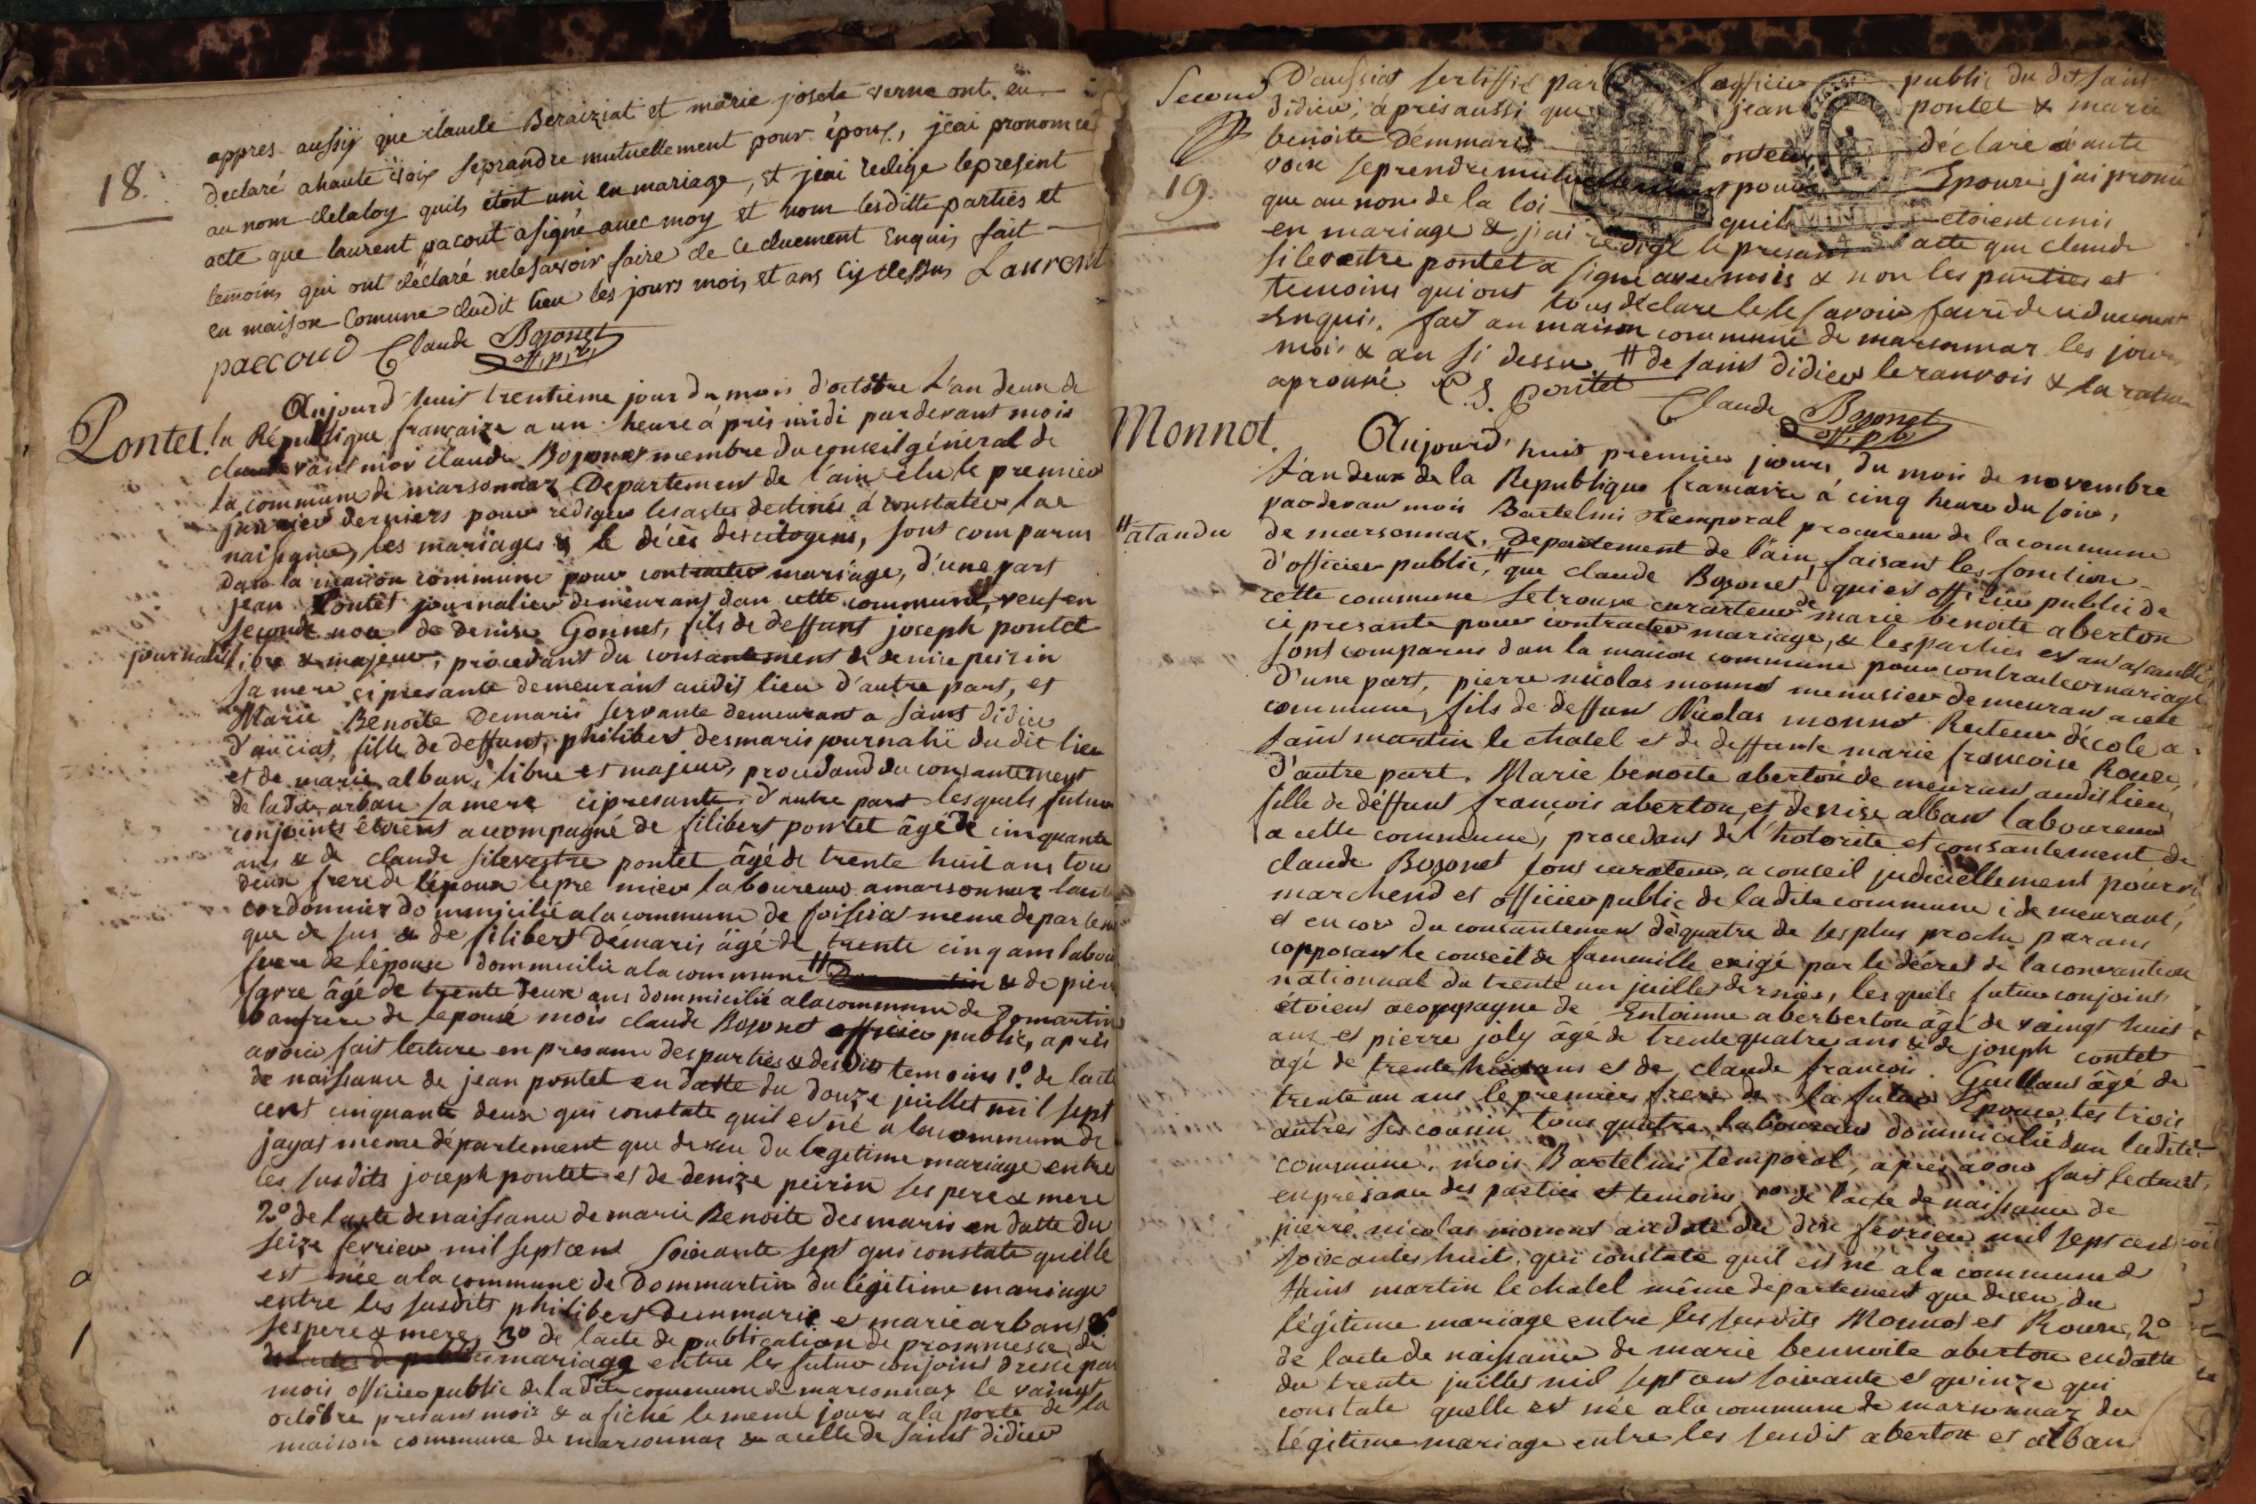 18.
appres aussiy que claude Beraiziat et marie josete verne ont eu
declaré ahaute voix seprandre mutuellement pour époux, jeai prononcé
au nom delaloy quils étoit uni en mariage, et jeai redige lepresent
acte que laurent pacout asigné avec moy et nom lesditte parties et
temoins qui ont déclaré nelesavoir faire de ce duement Enquis fait
en maison Comune dudit lieu les jours mois et ans cy dessus Laurent
paccoud Claude Bozonet
off. p. b.
Pontet.
Aujourd'huit trentieme jour du mois d'octobre L'an deux de
la République française a un heure àprès midi pardevant mois
claude Bozonet membre du conseil géneral de
la commune de marsonnaz Departement de l'ain élu le premier
janvier derniers pour rediger les actes destinés à constater lae
naissance, les mariages & le déces des citoyens, sont comparus
dans la maison commune pour contracter mariage, d'une part
jean Pontet journalier demeurant dan cette commune, veuf en
seconde noce de denise Gonnet, fils de deffunt joseph pontet
journalie libre & majeur, procedant du consantement de denise peirin
sa mere cipresante demeurant audit lieu d'autre part, et
Marie Benoite Demaris servante demeurant a saint didier
d'aucias, fille de deffunt, philibert desmaris journalié dudit lieu
et de marie alban, libre et majeur, procedand du consantement
de ladite arban sa mere cipresante d'autre part lesquels futur
conjoints étoient acompagné de filibert pontet âgé de cinquante
ans & de claude silevestre pontet âgé de trente huit ans tou
deux frere de l'époux le premier laboureur a marsonnaz lautre
cordonnier dommicilié ala commune de foissiat meme departem
que de sus & de filibert démaris âgé de trente cinq ans labou
frere de lepouse dommicilié ala commune # & de pierre
favre âgé de trente deux ans dommicilié alacommune de Domartin
baufrere de lepouse mois claude Bozonet officier public, apres
avoir fait lecture en presance des parties & desdits temoins 1º. de lacte
de naissance de jean pontet en datte du douze juillet mil sept
cent cinquante deux qui constate quil est né a lacommune de
jayat meme département que desu du legetime mariage entre
les susdits joseph pontet et de denize peirin ses pere & mere
2º de lacte denaissance de marie Benoite desmaris en datte du
seize fevrier mil sept cent soixante sept qui constate quelle
est née ala commune de Dommartin du légitime mariage
entre les susdits philibert demmaris et marie arban
ses pere & mere, 3º de lacte de publication de prommesse de
mariage entre les futur conjoins dressé par
mois officier public de ladite commune de marsonnaz le vaingt
octobre presant mois & afiché le meme jours a la porte de la
maison commune de marsonnaz & acelle de saint didier
Second
19.
D'aussiat sertiffié par l'officier public du dit saint
didier, àprés aussi que jean pontet & marie
benoite Demmaris onteu déclaré a aute
voix seprendre mutuellement pour Epoux jai pronon
que au nom de la loi quils etoient unis
en mariage & j'ai redigé le presant acte que claude
silevestre pontet a signé avec mois & non les parties et
temoins qui ont tous déclare le le savoir faire de ce duement
enquis. fait an maison commune de marsonnaz les jour
mois & an si dessus # de saint didier
aprouvé C. S. Pontet Claude Bozonet
off. p. b.
Monnot.
Aujourd'huit premier jours du mois de novembre
l'an deux de la Republique francaise à cinq heure du soir,
pardevan mois Bartelmi temporal procureur de la commune
de marsonnaz, Departement de l'ain, faisant les fonction
#atandu
d'officier public, # que claude Bozonet qui est officier public de
cette commune se trouve curateur de marie benoite aberton
ci presante pour contracter mariage, & les parties
sont comparus dan la maison commune pour contracter mariage
d'une part, pierre nicolas monnot menusier demeurant a cete
commune, fils de deffunt Nicolas monnot Recteur d'école a
saint martin le chatel et de deffunte marie francoise Roure,
d'autre part. Marie benoite aberton demeurant audit lieu,
fille de déffunt françois aberton, et denise alban laboureur
a cette commune, procedant de l'hotorite et consantement de
claude Bozonet sons curateur, a conseil judiciellement pourvu
marchend et officier public de ladite commune i demeurant,
et en cor du consantement de quatre de ses plus proche parans
copposant le conseil de fammille exigé par le décret de la convantion
nationnal du trente un juillet dernier, les quels futur conjoins
étoient acompagne de Entoinne aberberton âgé de vaingt huit
ans et pierre joly âgé de trente quatre ans & de joseph contet
agé de trente huit ans et de claude francois Guillaut âgé de
trente un ans le premier frere de la future Epouse, les trois
autres ses cousin tous quatre laboureur dommicilié dan ladite
commune, mois Bartelmi temporal, àpres avoir fait lecture,
enpresance des parties et temoins, 1º de lacte de naissance de
pierre nicolas monnot andate du dix fevrier mil sept cen
soixantes huit, qui constate quil est né ala commune de
saint martin le chatel même departement que deseu du
légitime mariage entre les susdits Monnot et Roure, 2º
de lacte de naissance de marie bennoite aberton en datte
du trente juillet mil sept cent soixante et quinze qui
constate quelle est née ala commune de marsonnaz du
légitime mariage entre les susdit aberton et alban